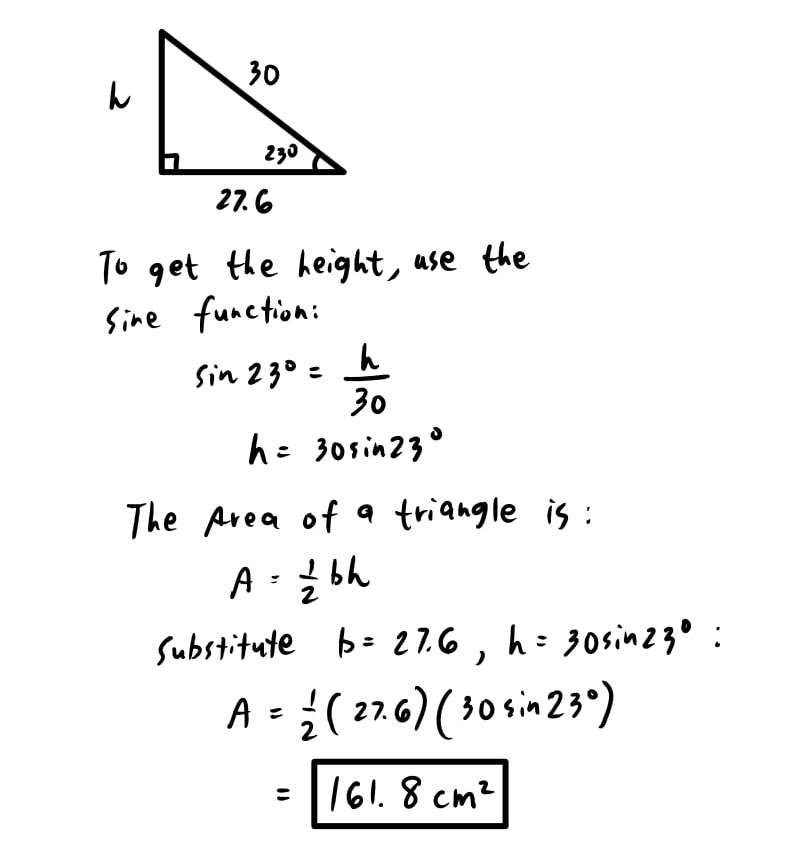 30
h
23°
27.6
To get the height, use the
sine function:
sin 23° = h/30
h = 30sin23°
The Area of a triangle is:
A = 1/2 bh
Substitute b = 27.6, h = 30sin23°:
A = 1/2 (27.6)(30 sin 23°)
= 161.8 cm²